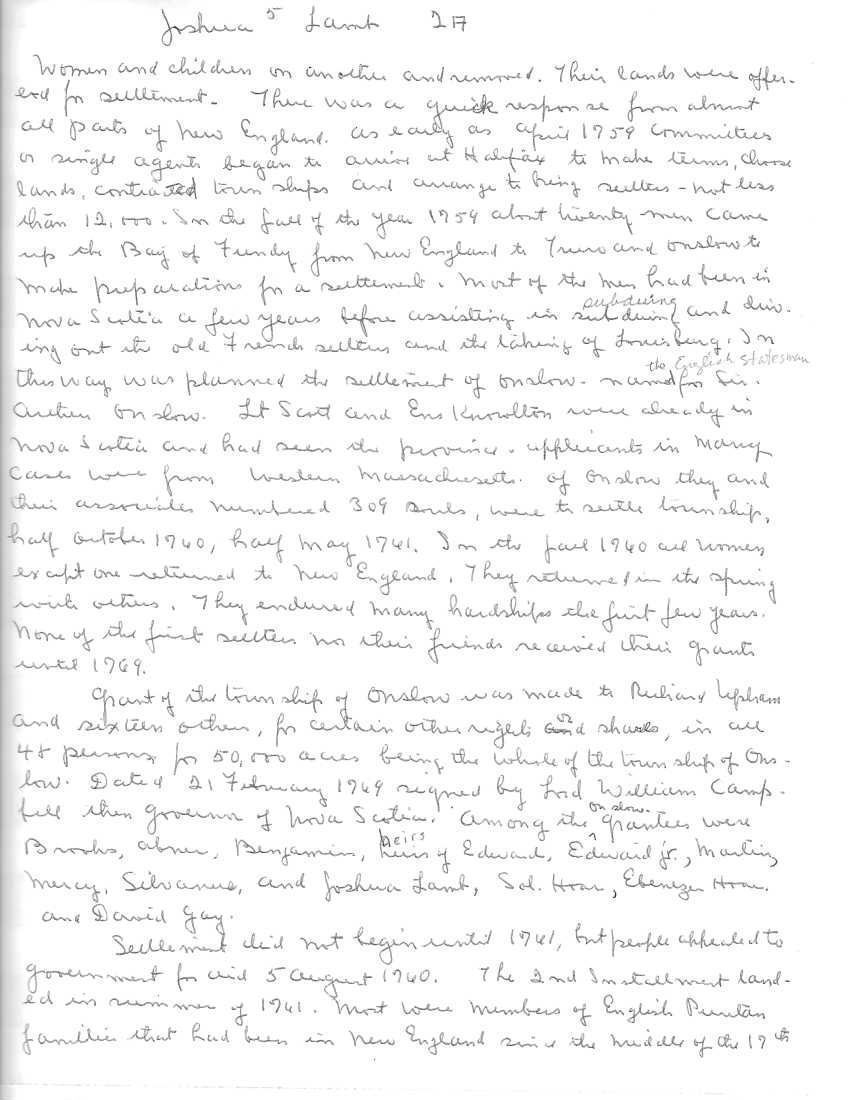 Joshua ⁵ Lamb 217
Women and children on another and removed. Their lands were offer-
ed for settlement - There was a quick response from almost
all parts of New England. as early as april 1759 Committees
or single agents began to arrive at Halifax to make terms, choose
lands, contracted town ships and arrange to bring settlers - not less
than 12,000. In the fall of the year 1759 about twenty men came
up the Bay of Fundy from New England to Truro and Onslow to
make preparations for a settlement. Most of the men had been in
Nova Scotia a few years before assisting in subduing subduing and driv-
ing out the old French settlers and the taking of Louisburg. In
this way was planned the settlement of Onslow - named for Sir. the English Statesman
Arthur Onslow. Lt Scott and Ens Knowlton were already in
Nova Scotia and had seen the province. applicants in many
cases were from Western Massachusetts. of Onslow they and
their associates numbered 309 souls, were to settle township,
half October 1760, half May 1761. In the fall 1760 all women
except one returned to New England. They returned in the spring
with others. They endured many hardships the first few years.
None of the first settlers nor their friends received their grants
until 1769.
Grant of the township of Onslow was made to Richard Upham
and sixteen others, for certain other rights or shares, in all
48 persons for 50,000 acres being the whole of the town ship of Ons-
low. Dated 21 February 1769 signed by Lord William Camp-
bell then Governor of Nova Scotia. Among the Onslow grantees were
Brooks, Abner, Benjamin, heirs heirs of Edward, Edward jr., Martin,
Mercy, Silvanus, and Joshua Lamb, Sol. Hoar, Ebenezer Hoar.
and David Gay.
Settlement did not begin until 1761, but people appealed to
government for aid 5 august 1760. The 2nd Installment land-
ed in summer of 1761. Most were members of English Puritan
families that had been in New England since the middle of the 17th